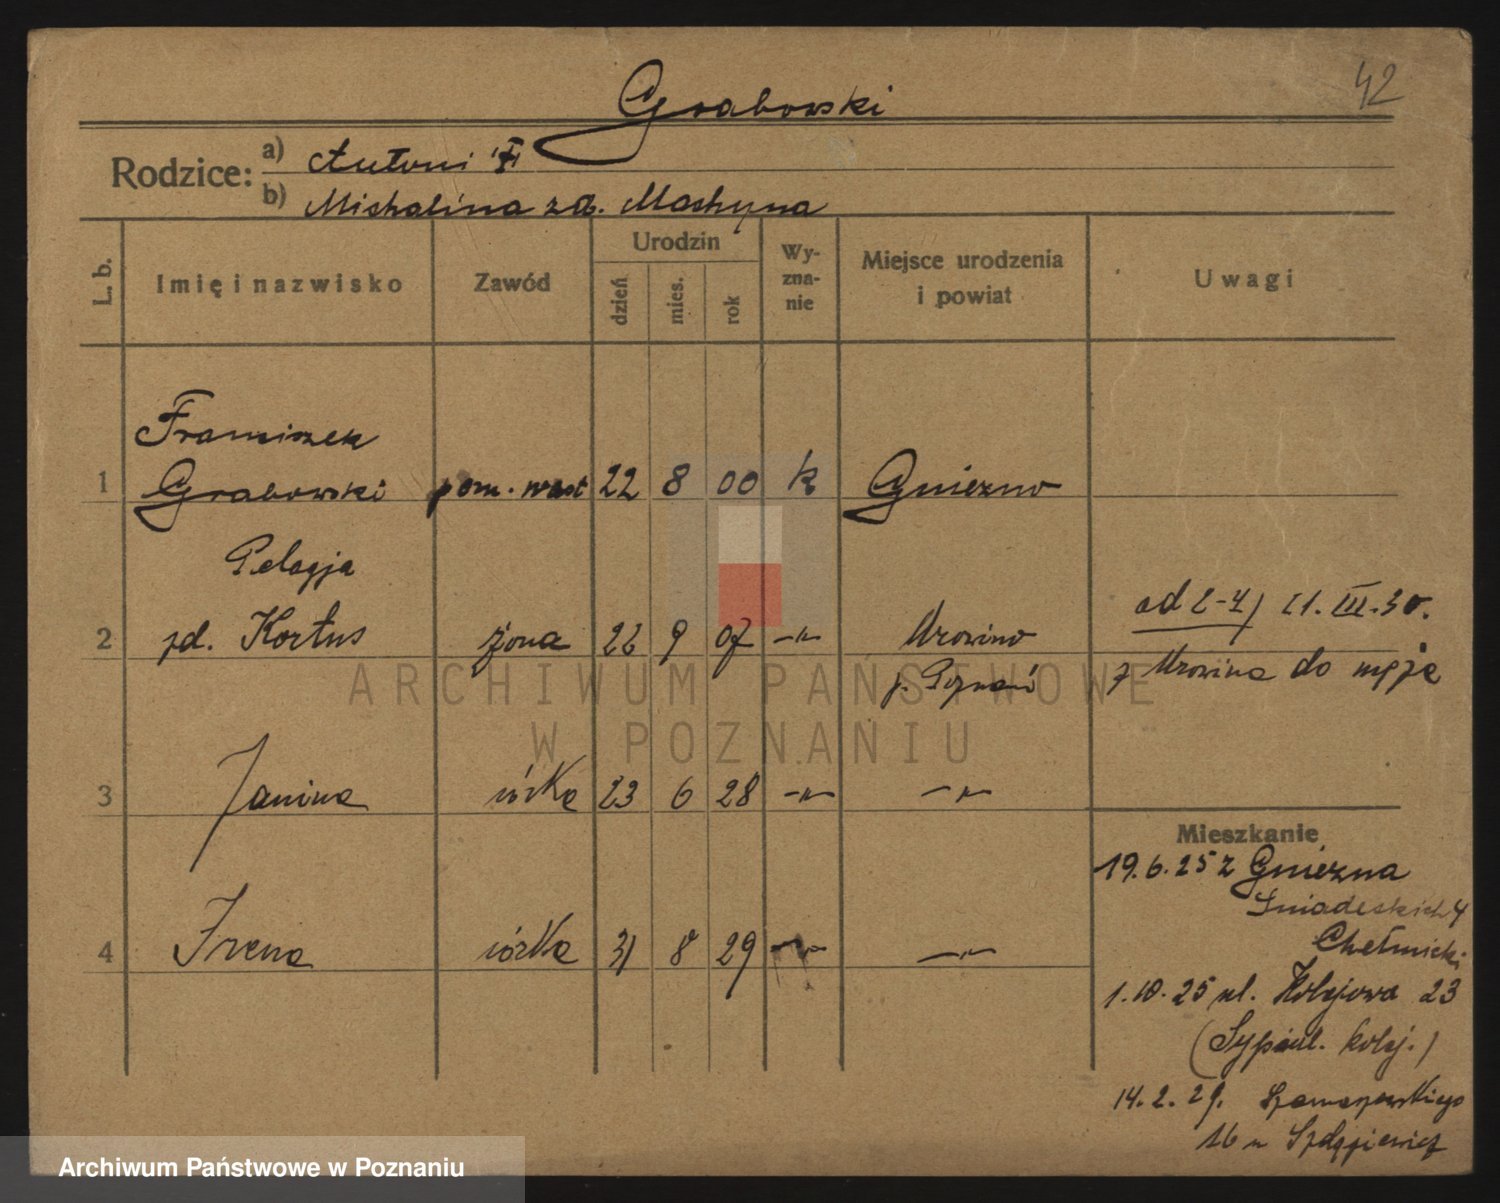 Grabowski
42
Rodzice:
a) Antoni
b) Michalina zd. Mochyna
L. b.
Imię i nazwisko
Zawód
Urodzin
dzień
mies.
rok
Wy-
zna-
nie
Miejsce urodzenia
i powiat
Uwagi
Franciszek
1 Grabowski pom. warst 22 8 00 k Gniezno
Pelagja
2 zd. Kortus żona 22 9 07 -"- Mrowino
p. Poznań
od 2-4) 21. III. 30.
z Mrowina do męża
3 Janina córka 23 6 28 -"- -"-
4 Irena córka 31 8 29 -"- -"-
Mieszkanie
19.6.25 z Gniezna
Śniadeckich 4
Chełmicki
1.10.25 ul. Kolejowa 23
kolej.)
14.2.29.
16 u
ARCHIWUM PAŃSTWOWE
W POZNANIU
Archiwum Państwowe w Poznaniu